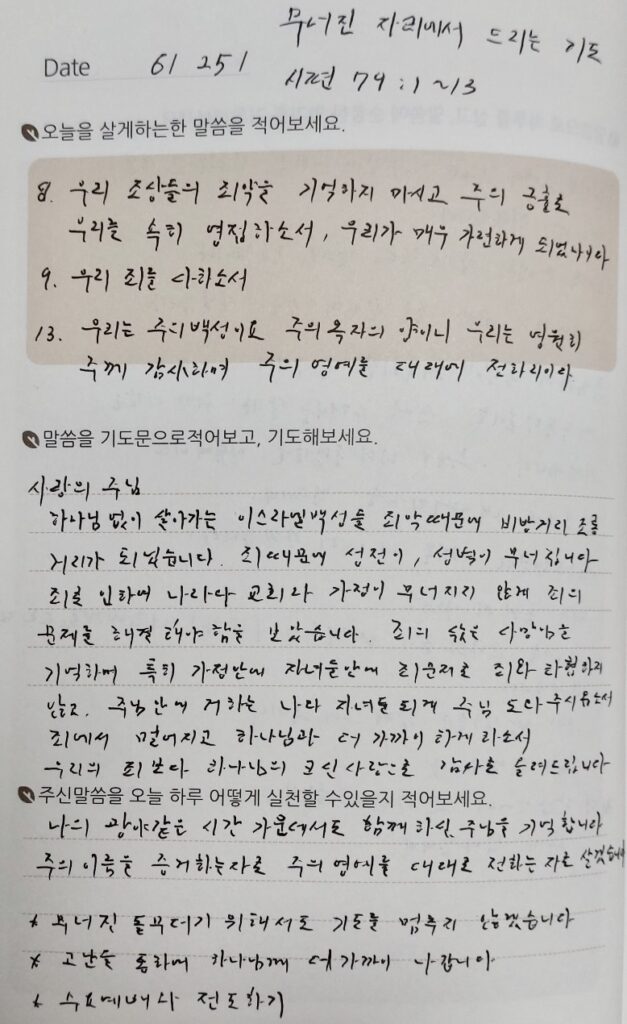 무너진 자리에서 드리는 기도
Date 6/ 25/
시편 79:1~13
오늘을 살게하는한 말씀을 적어보세요.
8. 우리 조상들의 죄악을 기억하지 마시고 주의 긍휼로
우리를 속히 영접하소서, 우리가 매우 가련하게 되었나이다
9. 우리 죄를 사하소서
13. 우리는 주의백성이요 주의 목자의 양이니 우리는 영원히
주께 감사하며 주의 영예를 대대에 전하리이다
말씀을 기도문으로적어보고, 기도해보세요.
사랑의 주님
하나님 없이 살아가는 이스라엘백성들 죄악때문에 비방거리 조롱
거리가 되었습니다. 죄때문에 성전이, 성벽이 무너집니다
죄로 인하여 나라와 교회와 가정이 무너지지 않게 죄의
문제를 해결해야함을 보았습니다. 죄의 삯은 사망임을
기억하며 특히 가정안에 자녀들안에 죄문제로 죄와 타협하지
않고. 주님안에 거하는 나와 자녀들 되게 주님 도와주시옵소서
죄에서 멀어지고 하나님과 더 가까이 하게 하소서
우리의 죄보다 하나님의 크신사랑으로 감사를 올려드립니다
주신말씀을 오늘 하루 어떻게 실천할 수있을지 적어보세요.
나의 광야같은 시간 가운데서도 함께 하신 주님을 기억합니다
주의 이름을 증거하는자로 주의 영예를 대대로 전하는 자로 살겠습니다
* 무너진 돌무더기 위에서도 기도를 멈추지 않겠습니다
* 고난을 통하여 하나님께 더 가까이 나갑니다
* 수요예배사 전도하기